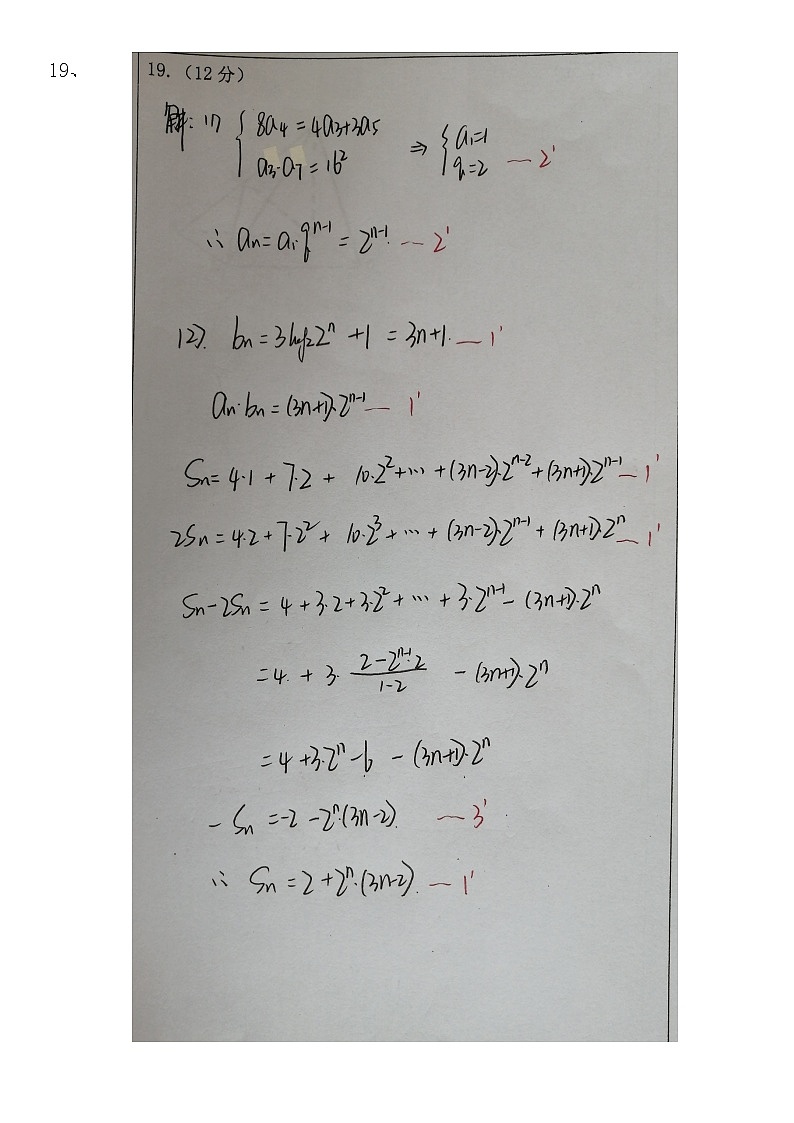 19、
19.（12分）
解：(1) { 8a₄ = 4a₃+3a₅ ⇒ { a₁=1
a₃·a₇ = 16² q=2 — 2'
∴ aₙ = a₁·qⁿ⁻¹ = 2ⁿ⁻¹. — 2'
(2). bₙ = 3log₂2ⁿ +1 = 3n+1. — 1'
aₙ·bₙ = (3n+1)·2ⁿ⁻¹ — 1'
Sₙ = 4·1 + 7·2 + 10·2² + ⋯ + (3n-2)·2ⁿ⁻² + (3n+1)·2ⁿ⁻¹ — 1'
2Sₙ = 4·2 + 7·2² + 10·2³ + ⋯ + (3n-2)·2ⁿ⁻¹ + (3n+1)·2ⁿ — 1'
Sₙ-2Sₙ = 4 + 3·2 + 3·2² + ⋯ + 3·2ⁿ⁻¹ - (3n+1)·2ⁿ
= 4. + 3· (2-2ⁿ⁻¹·2)/(1-2) - (3n+1)·2ⁿ
= 4 + 3·2ⁿ - 6 - (3n+1)·2ⁿ
- Sₙ = -2 - 2ⁿ·(3n-2). — 3'
∴ Sₙ = 2 + 2ⁿ·(3n-2). — 1'